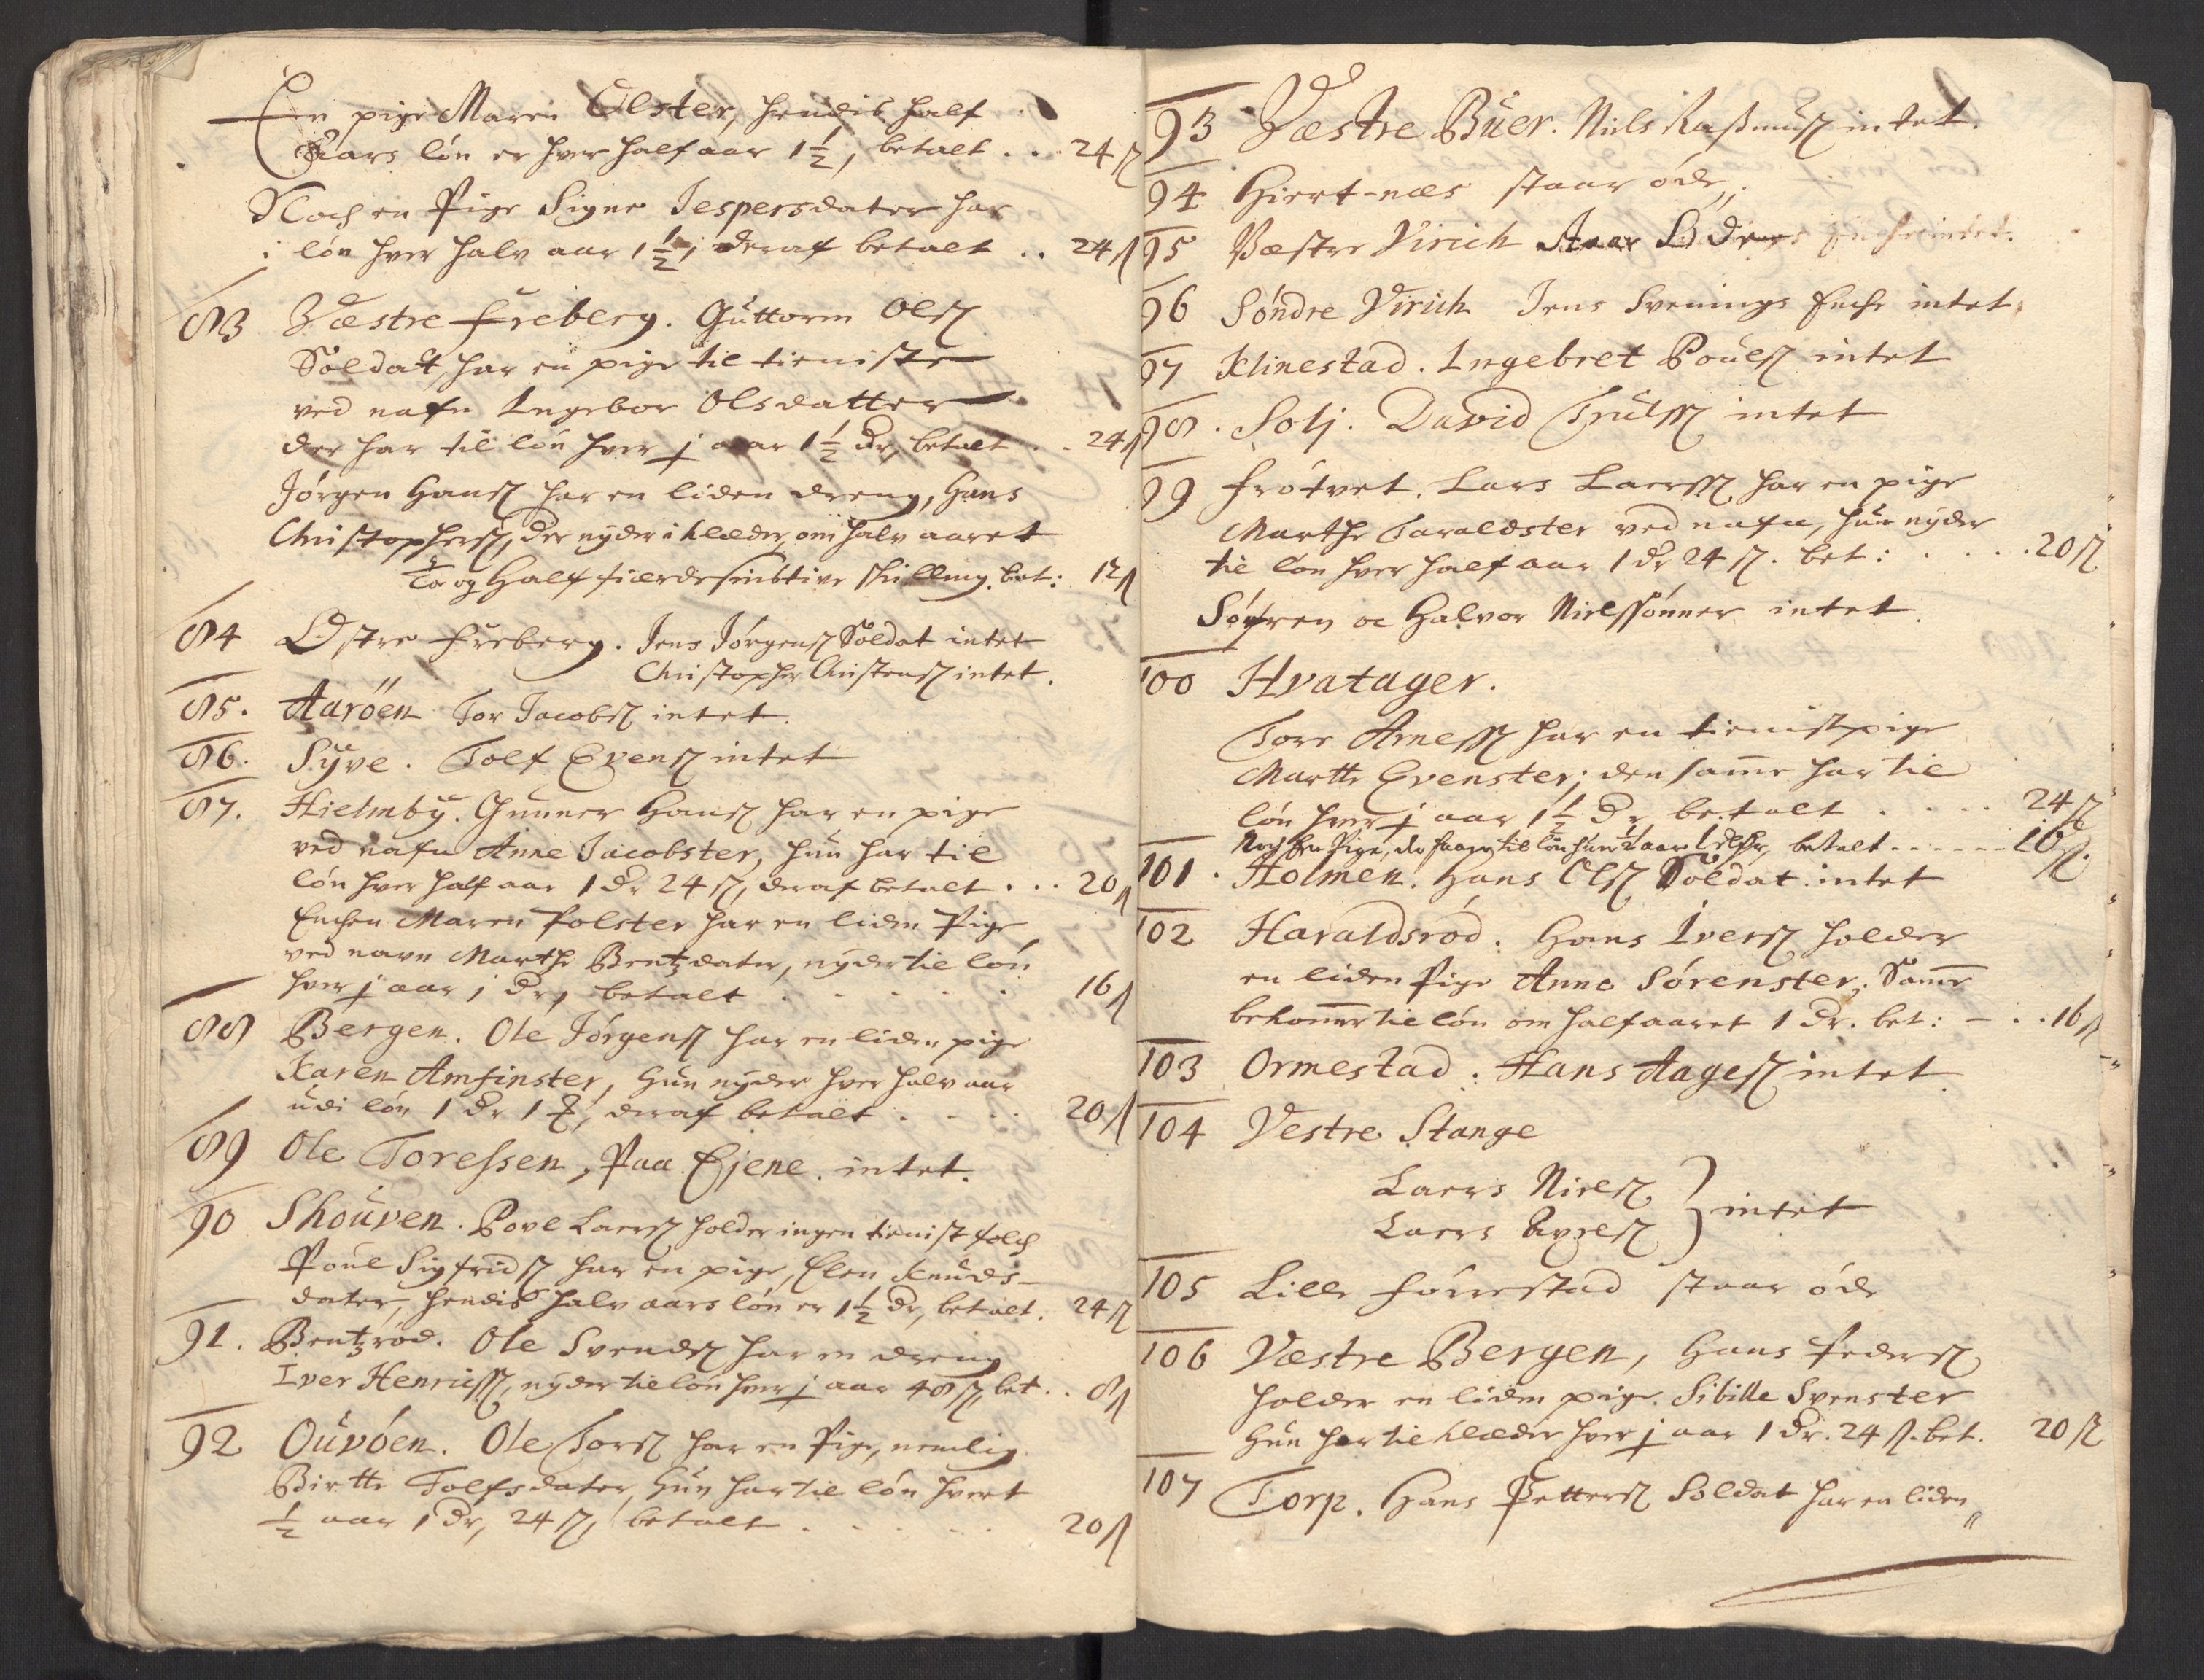 En pige Maren Olster, hendis half
Aars løn er hver half aar 1½, betalt . . . 24 ß
Noch en Pige Signe Jespersdater har
i løn hver halv aar 1½, deraf betalt . . 24 ß
83 Væstre Freberg. Guttorm Olsß
Soldat, har en pige til tieniste
ved nafn Ingebor Olsdatter
der har til løn hver j aar 1½ Dr, betalt . . 24 ß
Jørgen Hansß har en liden dreng, Hans
Christophersß, der nyder i klæder om halv aaret
To og Half fierdesindstive skilling. bet: 12 ß
84 Østre Freberg. Jens Jørgensß Soldat intet
Christopher Christensß intet.
85. Aarøen Tor Jacobsß intet.
86. Syve. Tolf Evensß intet
87. Hielmby. Gunner Hansß har en pige
ved nafn Anne Jacobster, hun har til
løn hver half aar 1 Dr 24 ß, deraf betalt . . . 20 ß
Enchen Maren Polster har en liden Pige
ved navn Marthe Bentzdater, nyder til løn
hver j aar j Dr, betalt . . . . . . 16 ß
88 Bergen. Ole Jørgensß har en liden pige
Karen Amfinster, hun nyder hver halv aar
udi løn 1 Dr 1 ꝝ, deraf betalt . . . . 20 ß
89 Ole Toressen, Paa Ejene. intet.
90 Skouven. Povl Laersß holder ingen tienist folch
Poul Sigfridsß har en pige, Elen Knuds-
dater, hendis halv aars løn er 1½ Dr, betalt. 24 ß
91. Bentzrød. Ole Svendsß har en dreng
Iver Henricsß, nyder til løn hver j aar 48 ß, bet . . 8 ß
92 Ouvøen. Ole Torsß har en Pige, nemlig
Birtte Tolfsdater, Hun har til løn hvert
½ aar 1 Dr, 24 ß, betalt . . . . . 20 ß
93 Væstre Buer. Niels Rasmusß intet.
94 Hiert-næs staar øde,.
95 Væstre Virich Enche intet.
96 Søndre Virich Jens Svenings Enche intet.
97 Klinestad. Ingebret Poulsß intet
98. Solj. David Truelsß intet
99 Frøtvet. Lars Laersß har en pige
Marthe Taraldster ved nafn, hun nyder
til løn hver half aar 1 Dr 24 ß. bet: . . . . . 20 ß
Søfren oc Halvor Nielssønner intet.
100 Hvatager.
Tore Arnesß har en tienistpige
Martte Evenster; den samme har til
løn hver j aar 1½ Dr betalt . . . . . 24 ß
Noch en Pige, der faar til løn hver ½ aar 1 dlr, betalt . . . . . . 16 ß.
101. Holmen. Hans Olsß Soldat intet
102 Haraldsrød. Hans Iversß holder
en liden Pige Anne Sørenster. Samme
bekommer til løn om half aaret 1 Dr. bet: - . . 16 ß
103 Ormestad. Hans Aagesß intet.
104 Vestre Stange
Laers Nielsß } intet
Laers
105 Lille Førrestad staar øde
106 Væstre Bergen, Hans Pedersß
holder en liden pige. Sibille Svenster
Hun har til klæder hver j aar 1 Dr. 24 ß. bet. 20 ß
107 Torp. Hans Pettersß Soldat har en liden